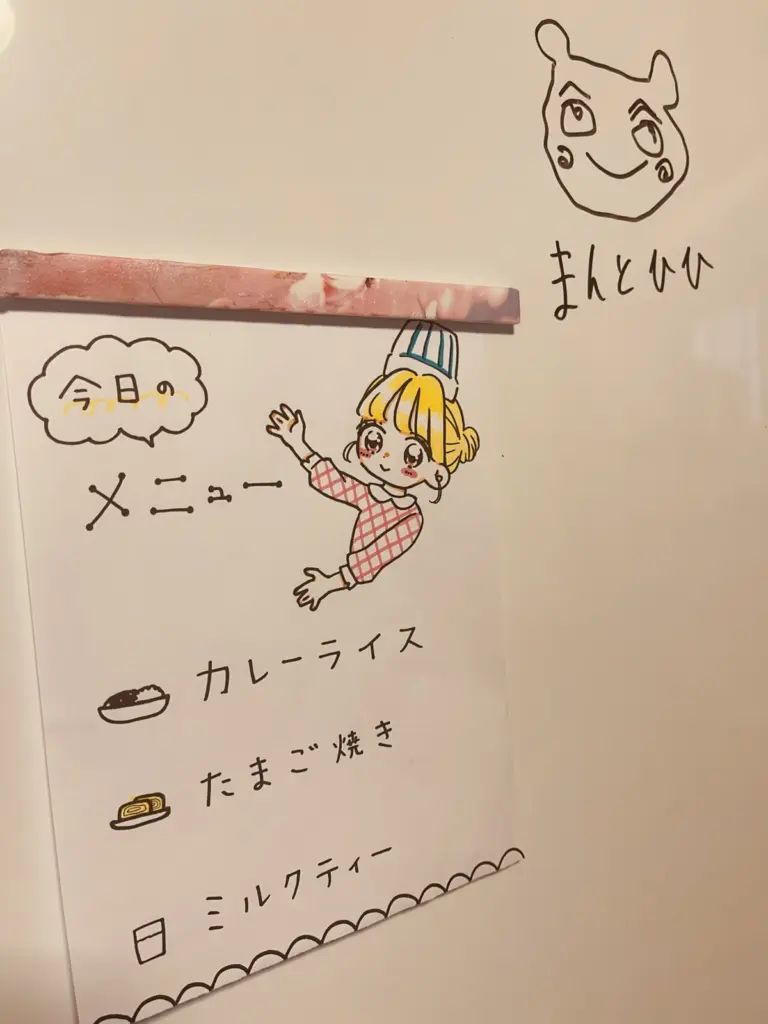 まんとひひ
今日の
メニュー
カレーライス
たまご焼き
ミルクティー